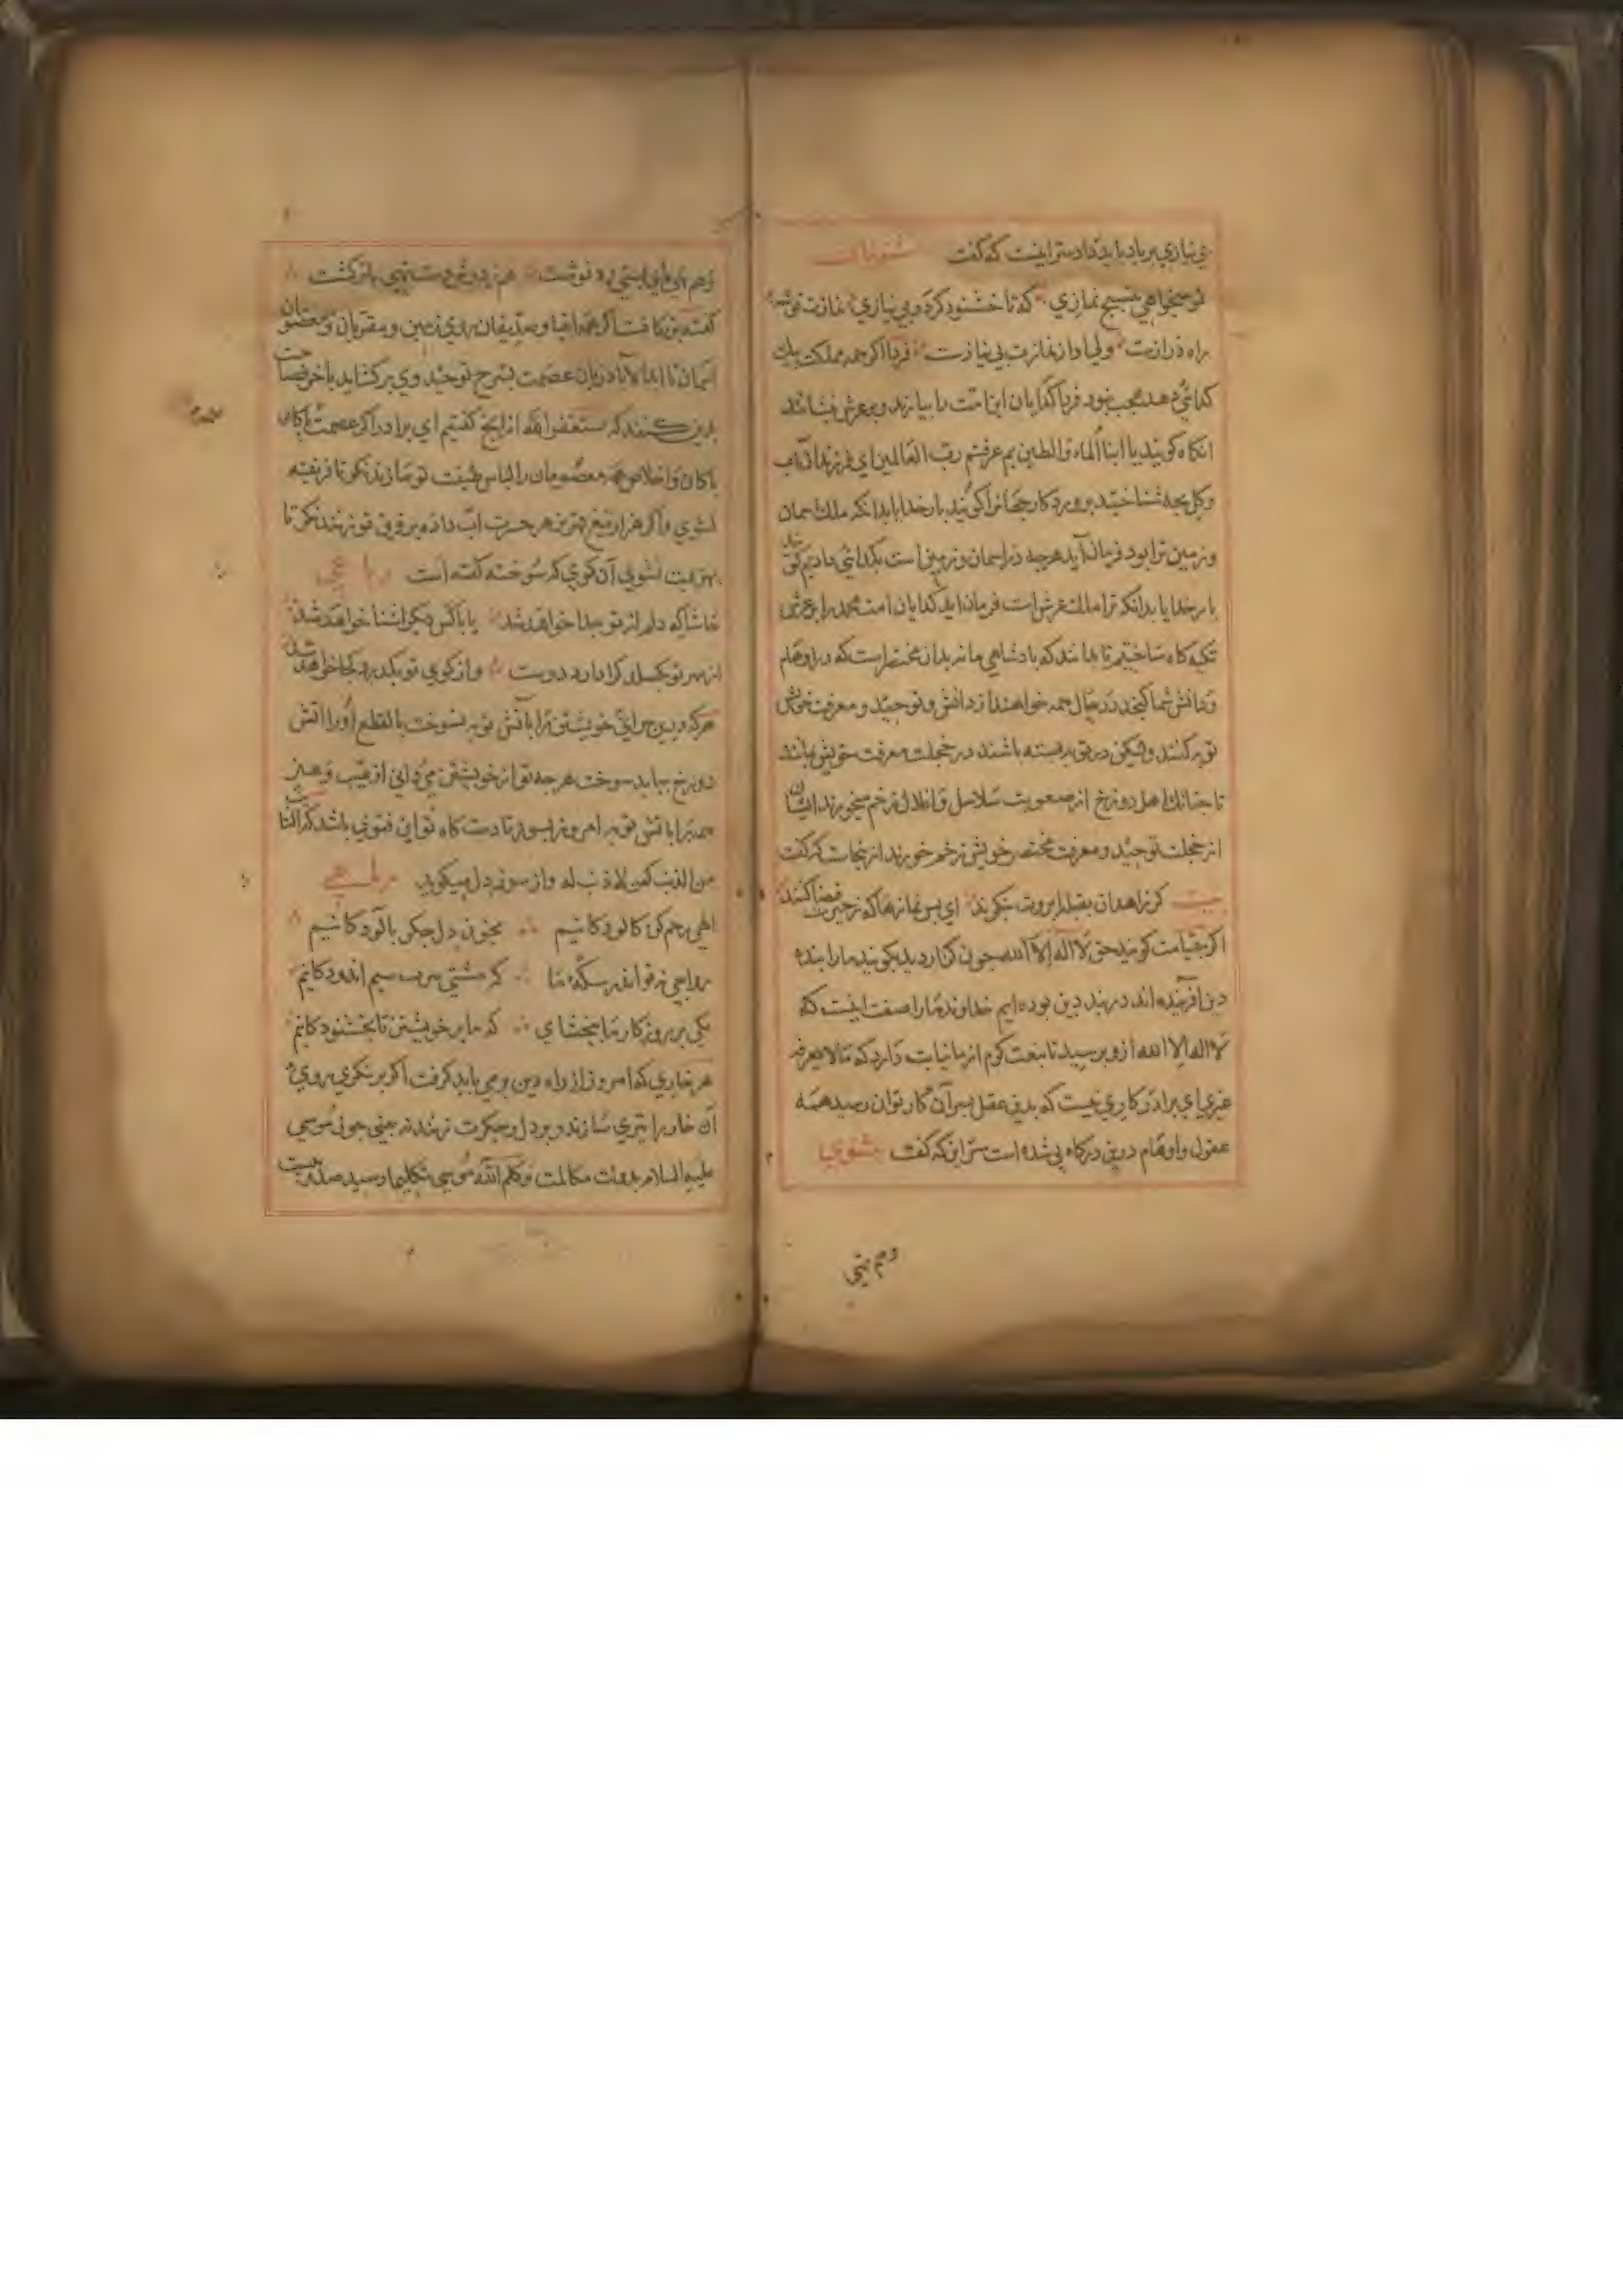 بی نیازی بر باد باید داد سر اینست که گفت مثنوی
تو میخواهی بتسبیح نمازی که تا خشنود کرددبی نیازی نمازت توشه
راه درازست ولی او از نمازت بی نیازست فردا اکر همه مملکت بیک
کدائی دهد عجب نبود فردا کدایان این امت را بیارند و بر عرش بنشانند
انکاه کویند یا ابنا الماء والطین بم عرفتم رب العالمین ای فرزندان آب
وکل بچه شناختید پروردکار جهانرا کویند بار خدایا بدانکه ملک اسمان
وزمین ترا بود فرمان آید هرچه در اسمان وزمین است بکدائی دادیم
بار خدایا بدانکه ترا ملک عرش است فرمان اید کدایان امت محمد را بر عرش
تکیه کاه ساختیم تا بدانند که بادشاهی ما نه بدان مختصر است که در اوهام
ودانش شما کنجد در حال همه خواهند از دانش و توحید و معرفت خویش
توبه کنند ولیکن در توبه بسته باشند در خجلت معرفت خویش بمانند
تا چنانک اهل دوزخ از صعوبت سلاسل و اغلال زخم میخورند ایشان
از خجلت توحید و معرفت مختصر خویش زخم خورند از ینجاست که کفت
بیت کر زاهدان بقبله ابروت بنکرند ای بس نمازها که قضا کنند
اکر بقیامت کویند حق لا اله الا الله چون کزاردید بکویند ما را بنده
دین آفریده اند در بند دین بوده ایم خداوند ما را صفت اینست که
لا اله الا الله ازو برسید تا بنعت کرم از ما نیابت دارد که ما لا یعرفه
غیری ای برادر کاری نیست که بدین عقل بسر آن کار توان رسید همه
عقول و اوهام درین درکاه بی شده است سر این که کفت مثنوی
وهم تهی
وهم تهی بای بسی ره نوشت هم ز درش دست تهی باز کشت
کفته بزرکانست اکر همه انبیا و صدیقان روی زمین و مقربان و معصومان
اسمان تا ابد الآباد زبان عصمت بشرح توحید وی برکشایند باخر
بدین کنند که نستغفر الله از انچ کفتیم ای برادر اکر عصمت باکان
باکان و اخلاص همه معصومان را لباس طینت تو سازند نکر تا فریفته
نشوی و اکر هزار تیغ قهر بزهر حسرت اب داده بر فرق تو زنند نکر تا
بهزیمت نشوی آن کوی که سوخته کفته است رباعی
حاشا که دلم از تو جدا خواهد شد یا با کس دیکر اشنا خواهد شد
از مهر تو بکسلد کرا دارد دوست واز کوی تو بکذرد کجا خواهد شد
هرکه درین سرای خویشتن را باتش توبه نسوخت بالقطع اورا اتش
دوزخ بباید سوخت هرچه تو از خویشتن می دانی از عیب و هنر
همه را باتش توبه امروز بسوز تا دست کاه تو این فتوی باشد که التائب
من الذنب کمن لا ذنب له واز سوز دل میکوید رباعی
الهی رحم کن کالودکانیم بخون دل جکر بالودکانیم
رواجی نه تو اندر سکه ما که مشتی سرب سیم اندودکانیم
یکی بر روزکار ما ببخشای که ما بر خویشتن نابخشودکانیم
هر خاری که امروز از راه دین بر می باید کرفت اکر بر نکری بروی
آن خار را تیری سازند و بر دل و جکرت زنند نه بینی چون موسی
علیه السلام بدولت مکالمت و کلم الله موسی تکلیما رسید